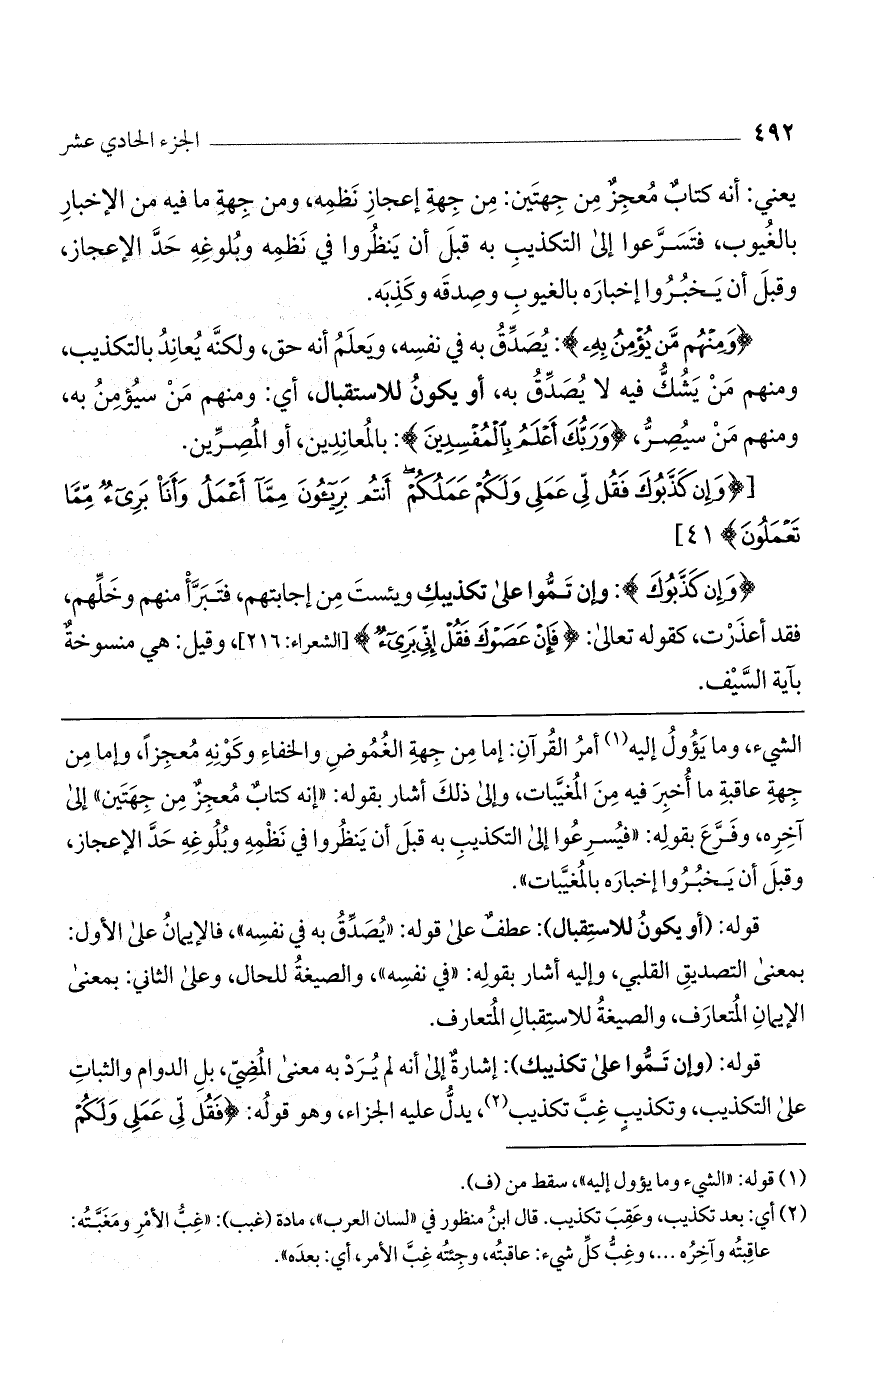 ٤٩٢ الجزء الحادي عشر
يعني: أنه كتابٌ مُعجِزٌ مِن جِهتَين: مِن جِهةِ إعجازِ نَظمِه، ومن جِهةِ ما فيه من الإخبارِ
بالغُيوب، فتَسَرَّعوا إلىٰ التكذيبِ به قبلَ أن يَنظُروا في نَظمِه وبُلوغِهِ حَدَّ الإعجاز،
وقبلَ أن يَـخبُـرُوا إخبارَه بالغيوبِ وصِدقَه وكَذِبَه.
﴿وَمِنْهُم مَّن يُؤْمِنُ بِهِۦ﴾: يُصَدِّقُ به في نفسِه، ويَعلَمُ أنه حق، ولكنَّه يُعانِدُ بالتكذيب،
ومنهم مَنْ يَشُكُّ فيه لا يُصَدِّقُ به، أو يكونُ للاستقبال، أي: ومنهم مَنْ سيُؤمِنُ به،
ومنهم مَنْ سيُصِـرُّ، ﴿وَرَبُّكَ أَعْلَمُ بِالْمُفْسِدِينَ﴾: بالمُعانِدِين، أو المُصِـرِّين.
[﴿وَإِن كَذَّبُوكَ فَقُل لِّي عَمَلِي وَلَكُمْ عَمَلُكُمْ ۖ أَنتُم بَرِيٓـُٔونَ مِمَّآ أَعْمَلُ وَأَنَا۠ بَرِىٓءٌ مِّمَّا
تَعْمَلُونَ﴾ ٤١]
﴿وَإِن كَذَّبُوكَ﴾: وإن تَـمُّوا علىٰ تكذيبكِ ويئستَ مِن إجابتهم، فتَبَرَّأْ منهم وخَلِّهم،
فقد أعذَرْت، كقوله تعالىٰ: ﴿فَإِنْ عَصَوْكَ فَقُلْ إِنِّي بَرِىٓءٌ﴾ [الشعراء: ٢١٦]، وقيل: هي منسوخةٌ
بآية السَّيْف.
الشيء، وما يَؤُولُ إليه(١) أمرُ القُرآنِ: إما مِن جِهةِ الغُمُوضِ والخفاءِ وكَوْنِهِ مُعجِزاً، وإما مِن
جِهةِ عاقبةِ ما أُخبِرَ فيه مِنَ المُغيَّبات، وإلىٰ ذلكَ أشار بقوله: «إنه كتابٌ مُعجِزٌ مِن جِهَتَين» إلىٰ
آخِرِه، وفَـرَّعَ بقولِه: «فيُسـرِعُوا إلىٰ التكذيبِ به قبلَ أن يَنظُروا في نَظْمِهِ وبُلُوغِهِ حَدَّ الإعجاز،
وقبلَ أن يَـخبُـرُوا إخبارَه بالمُغيَّبات».
قوله: (أو يكونُ للاستِقبال): عطفٌ علىٰ قوله: «يُصَدِّقُ به في نفسِه»، فالإيمانُ علىٰ الأول:
بمعنىٰ التصديقِ القلبي، وإليه أشار بقولِه: «في نفسِه»، والصيغةُ للحال، وعلىٰ الثاني: بمعنىٰ
الإيمانِ المُتعارَف، والصيغةُ للاستِقبالِ المُتعارف.
قوله: (وإن تَـمُّوا علىٰ تكذيبك): إشارةٌ إلىٰ أنه لم يُـرَدْ به معنىٰ المُضِيّ، بلِ الدوام والثباتِ
علىٰ التكذيب، وتكذيبٍ غِبَّ تكذيب(٢)، يدلُّ عليه الجزاء، وهو قولُه: ﴿فَقُل لِّي عَمَلِي وَلَكُمْ
(١) قوله: «الشيء وما يؤول إليه»، سقط من (ف).
(٢) أي: بعد تكذيب، وعَقِبَ تكذيب. قال ابنُ منظور في «لسان العرب»، مادة (غبب): «غِبُّ الأمْرِ ومَغَبَّـتُه:
عاقِبتُه وآخِرُه ...، وغِبُّ كلِّ شيء: عاقبتُه، وجِئتُه غِبَّ الأمر، أي: بعدَه».